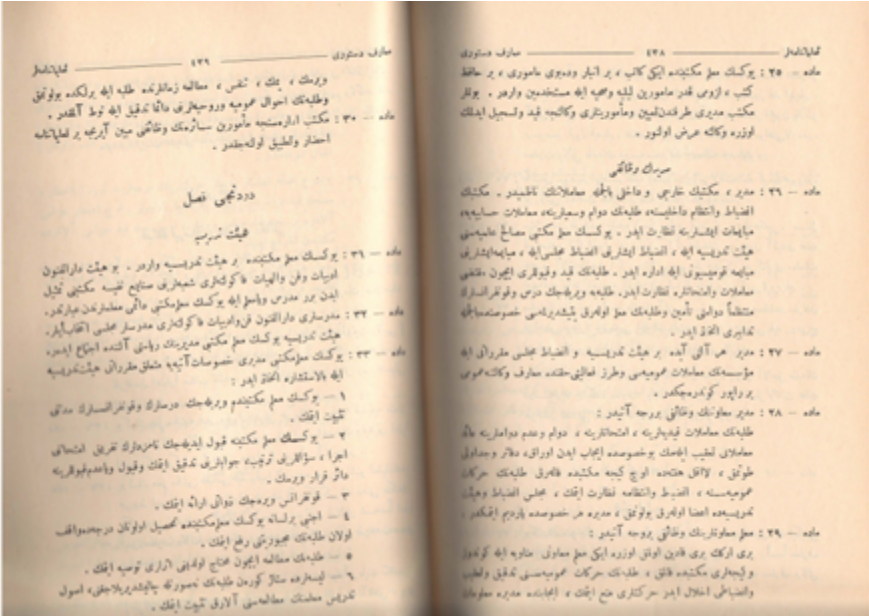 تعلیماتنامه‌لر ٤٣٨ معارف دستوری
ماده — ٢٥ : یوكسك معلم مكتبنده ایكی كاتب ، بر انبار ودپوی ماموری ، بر حافظ
كتب ، لزومی قدر مأمورین لیلیه وصحیه ایله مستخدمین واردر . بونلر
مكتب مدیری طرفندن تعیین ومأموریتلری وكالتجه قید وتسجیل ایدلمك
اوزره وكالته عرض اولنور .
مدیرك وظائفی
ماده — ٢٦ : مدیر ، مكتبك خارجی و داخلی بالجمله معاملاتنك ناظمیدر . مكتبك
انضباط وانتظام داخلیسنه، طلبه‌نك دوام وسعیلرینه، معاملات حسابیه‌یه،
مبایعات ایشلرینه نظارت ایدر . یوكسك معلم مكتبی مصالح علمیه‌سنی
هیئت تدریسیه ایله ، انضباط ایشلرینی انضباط مجلسی‌ایله ، مبایعه‌ایشلرینی
مبایعه قومیسیونی ایله اداره ایدر . طلبه‌نك قید وقبوللری ایچون مقتضی
معاملات وامتحانلره نظارت ایدر. طلبه‌یه ویریله‌جك درس وقونفرانسلرك
منتظماً دوامنی تأمین وطلبه‌نك معلم اوله‌رق یتیشدیرلمه‌سی خصوصنده‌بالجمله
تدابیری اتخاذ ایدر .
ماده — ٢٧ : مدیر هر آلتی آیده بر هیئت تدریسیه و انضباط مجلس مقرراتی ایله
مؤسسه‌نك معاملات عمومیه‌سی وطرز فعالیتی‌حقنده معارف وكالته‌عمومی
بر راپور كوندره‌جكدر .
ماده — ٢٨ : مدیر معاوننك وظائفی بروجه آتیدر :
طلبه‌نك معاملات قیدیه‌لرینه ، امتحانلرینه ، دوام وعدم دواملرینه عائد
معاملاتی تعقیب ایله‌مك بوخصوصده ایجاب ایدن اوراق، دفاتر وجداولی
طوتمق ، لااقل هفته‌ده اوچ كیجه مكتبده قاله‌رق طلبه‌نك حركات
عمومیه‌سنه ، انضباط وانتظامه نظارت ایتمك ، مجلس انضباط وهیئت
تدریسیه‌ده اعضا اوله‌رق بولونمق ، مدیره هر خصوصده یاردیم ایتمكدر .
ماده — ٢٩ : معلم معاونلرینك وظائفی بروجه آتیدر :
بری اركك بری قادین اولمق اوزره ایكی معلم معاونی مناوبه ایله كوندوز
وكیجه‌لری مكتبده قالمق ، طلبه‌نك حركات عمومیه‌سنی تدقیق وتعقیب
وانضباطی اخلال ایدر حركتلری منع ایتمك ، ایجابنده مدیره معلومات
معارف دستوری ٤٣٩ تعلیماتنامه‌لر
ویرمك ، یمك ، تنفس ، مطالعه زمانلرنده طلبه ایله برلكده بولونمق
وطلبه‌نك احوال عمومیه وروحیه‌لرینی دائما تدقیق ایله نوط آلمقدر .
ماده — ٣٠ : مكتب اداره‌سنجه مأمورین سائره‌نك وظائفی مبین آیریجه بر تعلیماتنامه
احضار وتطبیق اولنه‌جقدر .
دردنجی فصل
هیئت تدریسیه
ماده — ٣١ : یوكسك معلم مكتبنده بر هیئت تدریسیه واردر . بو هیئت دارالفنون
ادبیات وفن والهیات فاكولته‌لری شعبه‌لرینی صنایع نفیسه مكتبنی تمثیل
ایدن برر مدرس ویامعلم ایله یوكسك معلم‌مكتبی دائمی معلملرندن عبارتدر.
ماده — ٣٢ : مدرسلری دارالفنون فن‌وادبیات فاكولته‌لری مدرسلر مجلسی انتخاب‌ایلر.
هیئت تدریسیه یوكسك معلم مكتبی مدیرینك ریاستی آلتنده اجتماع ایدر.
ماده — ٣٣ : یوكسك معلم‌مكتبی مدیری خصوصات‌آتیه‌یه متعلق مقرراتی هیئت‌تدریسیه
ایله بالاستشاره اتخاذ ایدر :
١ — یوكسك معلم مكتبنده ویریله‌جك درسلرك وقونفرانسلرك مدتنی
تثبیت ایتمك .
٢ — یوكسك معلم مكتبنه قبول ایدیله‌جك نامزدلرك تفریق امتحانی
اجرا ، سؤاللرینی ترتیب، جوابلرینی تدقیق ایتمك وقبول ویاعدم‌قبوللرینه
دائر قرار ویرمك .
٣ — قونفرانس ویره‌جك ذواتی ارائه ایتمك .
٤ — اجنبی برلسانه یوكسك معلم‌مكتبنده تحصیل اولونان درجه‌ده‌واقف
اولان طلبه‌نك مجبوریتنی رفع ایتمك .
٥ — طلبه‌نك مطالعه ایچون محتاج اولدینی اثرلری توصیه ایتمك .
٦ — لیسه‌لرده ستاژ كورن طلبه‌نك نه‌صورتله چالیشدیریلاجغنی، اصول
تدریس معلمنك مطالعه‌سنی آلارق تثبیت ایتمك .